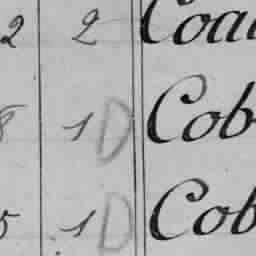 2 2 Coa
8 1 D Cob
5 1 D Cob